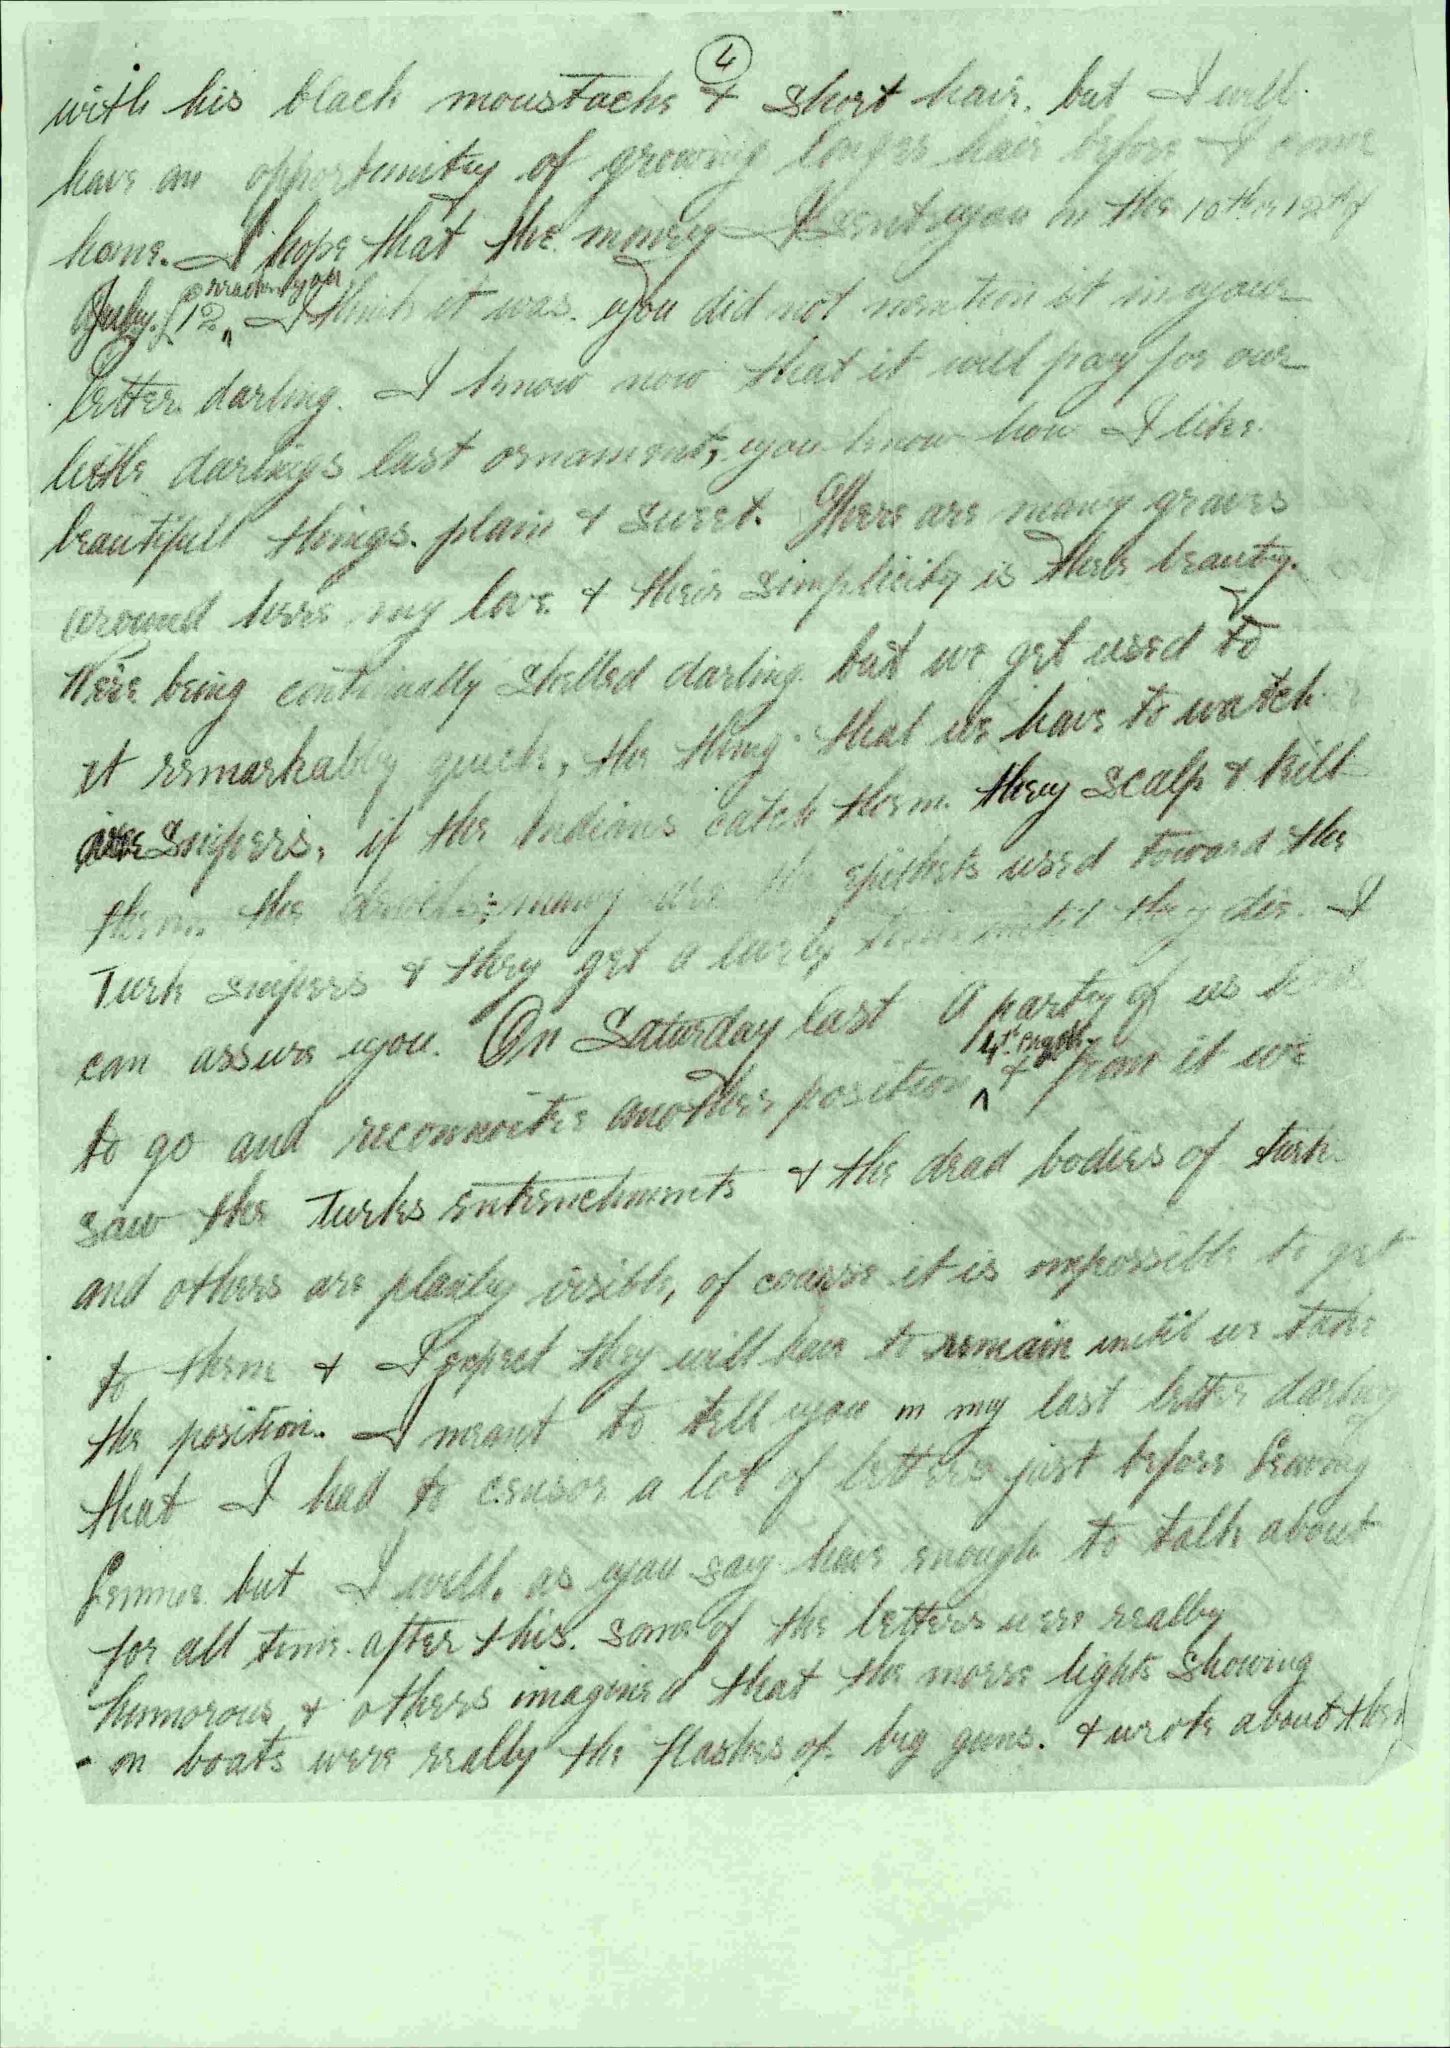 4
with his black moustache & short hair. but I will
have an opportunity of growing longer hair before I come
home. I hope that the money I sent you on the 10th or 12th of
reached you
July. £12 I think it was. you did not mention it in your
letter darling. I know now that it will pay for our
little darlings last ornament, you know how I like
beautifull things. plain & sweet. There are many graves
around here my love & their simplicity is their beauty.
We're being continually shelled darling but we get used to
it remarkably quick, the thing that we have to watch
are snipers, if the Indians catch them they scalp & kill
them. the many are the epithets used toward the
Turk snipers & they get a lively time until they die. I
can assure you. On Saturday last a party of us had
to go and reconnoitre another position & from it we
saw the Turks entrenchments & the dead bodies of turk
and others are plainly visible, of course it is impossible to get
to them & I expect they will have to remain until we take
the position. I meant to tell you in my last letter darling
that I had to censor a lot of letters just before leaving
Lemnos but I will, as you say have enough to talk about
for all time after this. some of the letters were really
humorous & others imagined that the morse lights showing
on boats were really the flashes of big guns. & wrote about them